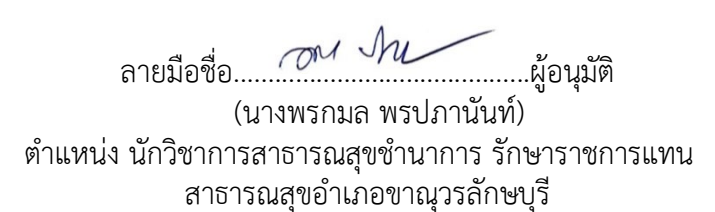 ลายมือชื่อ............................................ผู้อนุมัติ
(นางพรกมล พรปภานันท์)
ตำแหน่ง นักวิชาการสาธารณสุขชำนาการ รักษาราชการแทน
สาธารณสุขอำเภอขาณุวรลักษบุรี